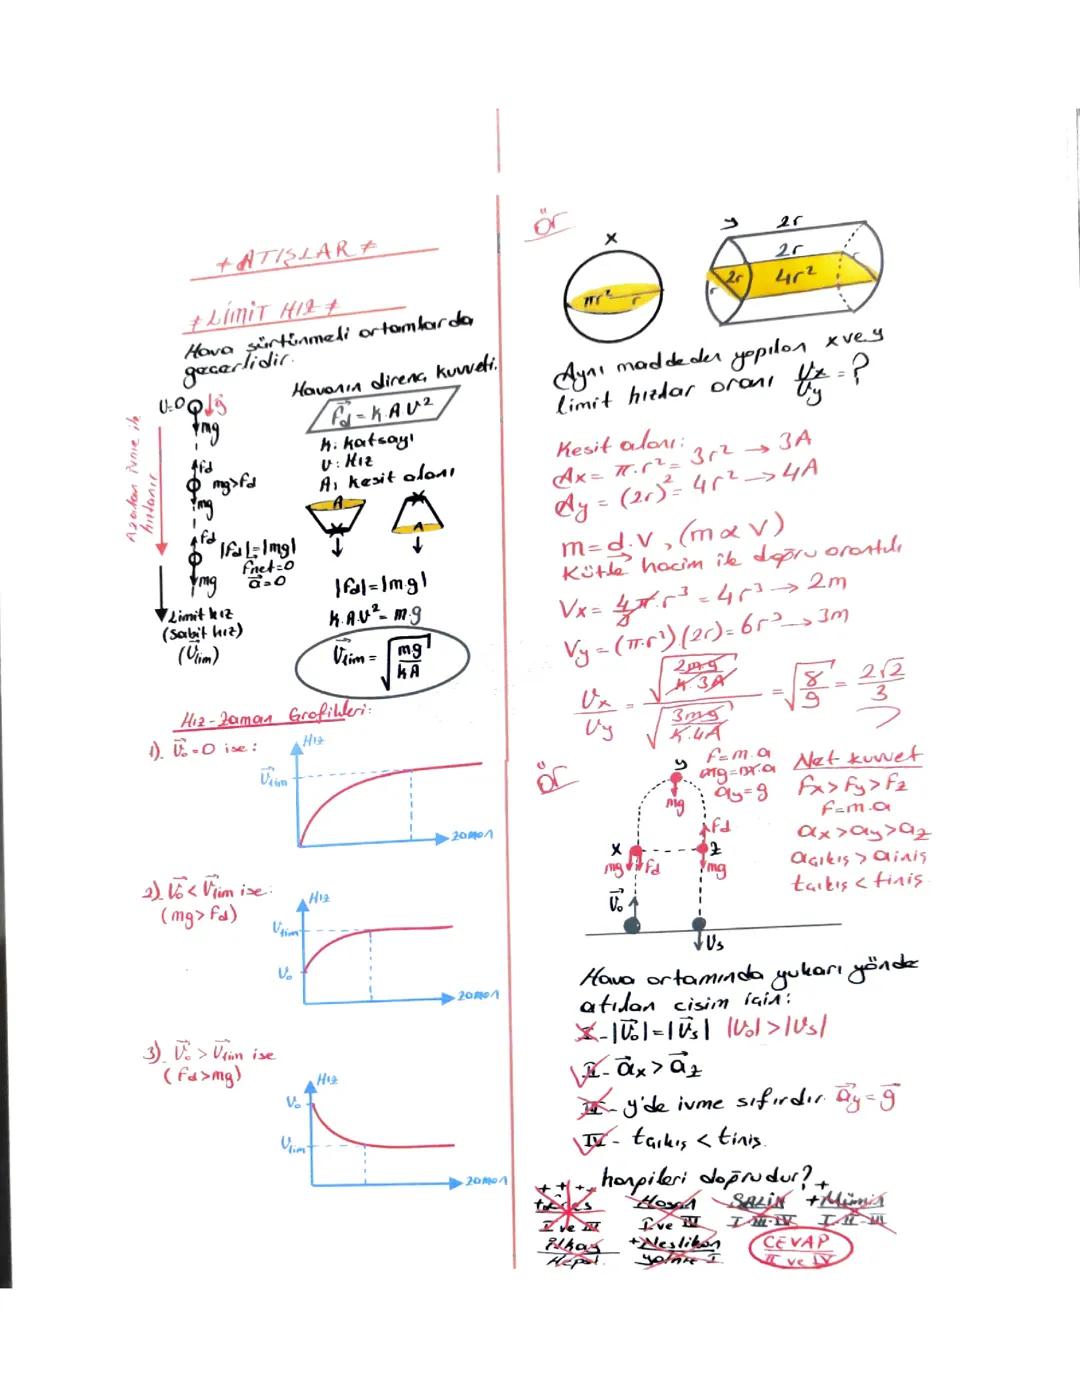 * ATIŞLAR *
* LİMİT HIZ *
Hava sürtünmeli ortamlarda
geçerlidir.
Havanın direnç kuvveti.
F⃗d = k.A.υ²
k: katsayı
υ: Hız
A: kesit alanı
A
A
|Fd|=|mg|
k.A.υ² = m.g
υ⃗lim = √(mg/kA)
υ=0
g⃗
mg
Azalan ivme ile
hızlanır
Fd
mg>Fd
mg
Fd
|Fd|=|mg|
Fnet=0
a⃗=0
mg
Limit hız
(Sabit hız)
(υ⃗lim)
Hız-Zaman Grafikleri:
1). υ⃗₀=0 ise:
Hız
υ⃗lim
zaman
2). υ⃗₀ < υ⃗lim ise:
(mg>Fd)
Hız
υlim
υ₀
zaman
3). υ⃗₀ > υ⃗lim ise
(Fd>mg)
Hız
υ₀
υlim
zaman
Ör
x
πr²
r
y
2r
2r
2r
4r²
r
r
Aynı maddeden yapılan x ve y
limit hızlar oranı υx/υy = ?
Kesit alanı:
Ax = π.r² = 3r² → 3A
Ay = (2r)² = 4r² → 4A
m = d.V, (m α V)
Kütle hacim ile doğru orantılı
Vx = 4/3 π.r³ = 4r³ → 2m
Vy = (π.r²).(2r) = 6r³ → 3m
υx/υy = √(2mg/k.3A) / √(3mg/k.4A) = √(8/9) = 2√2/3
Ör
y
mg
F=m.a
mg=m.a
ay=g
x
mg
Fd
υ⃗₀
Fd
z
mg
υs
Net kuvvet
Fx>Fy>Fz
F=m.a
ax>ay>az
açıkış > ainiş
tçıkış < tiniş
Hava ortamında yukarı yönde
atılan cisim için:
I - |υ⃗₀|=|υ⃗s| |υ₀|>|υs|
II - a⃗x > a⃗z
III - y'de ivme sıfırdır. a⃗y = g⃗
IV - tçıkış < tiniş.
hangileri doğrudur?
Hasan
I ve IV
+Mümin
I-II-III
İlkay
Hepsi
+Neslihan
yalnız I
CEVAP
II ve IV